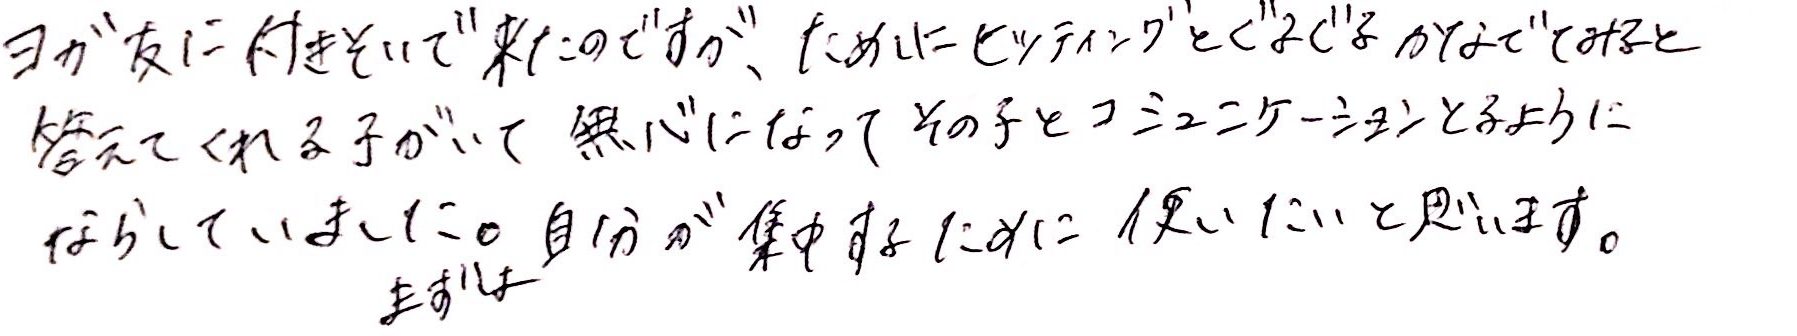 ヨガ友に付きそいで来たのですが、ためしにヒッティングとぐるぐるかなでてみると
答えてくれる子がいて無心になってその子とコミュニケーションとるように
ならしていました。自分が集中するために使いたいと思います。
まずは